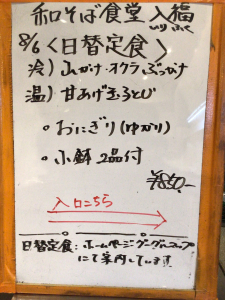 和そば食堂 入福
いり ふく
8/6 <日替定食>
冷) 山かけ・オクラぶっかけ
温) 甘あげ玉子とじ
・おにぎり(ゆかり)
・小鉢 2品付
¥850-
入口こちら
日替定食:ホームページ・グーグルマップ
にて案内しています